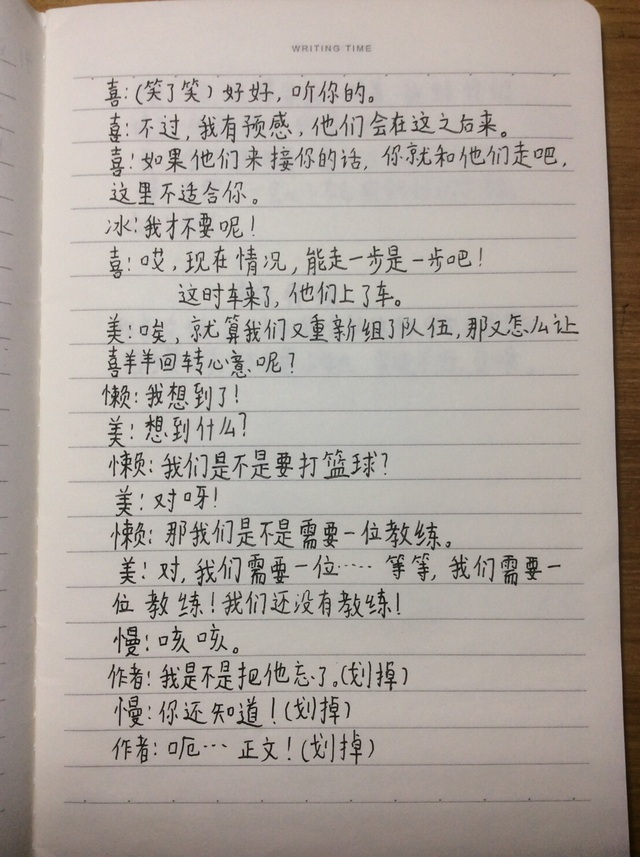 WRITING TIME
喜:(笑了笑)好好,听你的。
喜:不过,我有预感,他们会在这之后来。
喜:如果他们来接你的话,你就和他们走吧,
这里不适合你。
冰:我才不要呢!
喜:哎,现在情况,能走一步是一步吧!
这时车来了,他们上了车。
美:唉,就算我们又重新组了队伍,那又怎么让
喜羊羊回转心意呢?
懒:我想到了!
美:想到什么?
懒:我们是不是要打篮球?
美:对呀!
懒:那我们是不是需要一位教练。
美:对,我们需要一位……等等,我们需要一
位教练!我们还没有教练!
慢:咳咳。
作者:我是不是把他忘了。(划掉)
慢:你还知道!(划掉)
作者:呃…正文!(划掉)